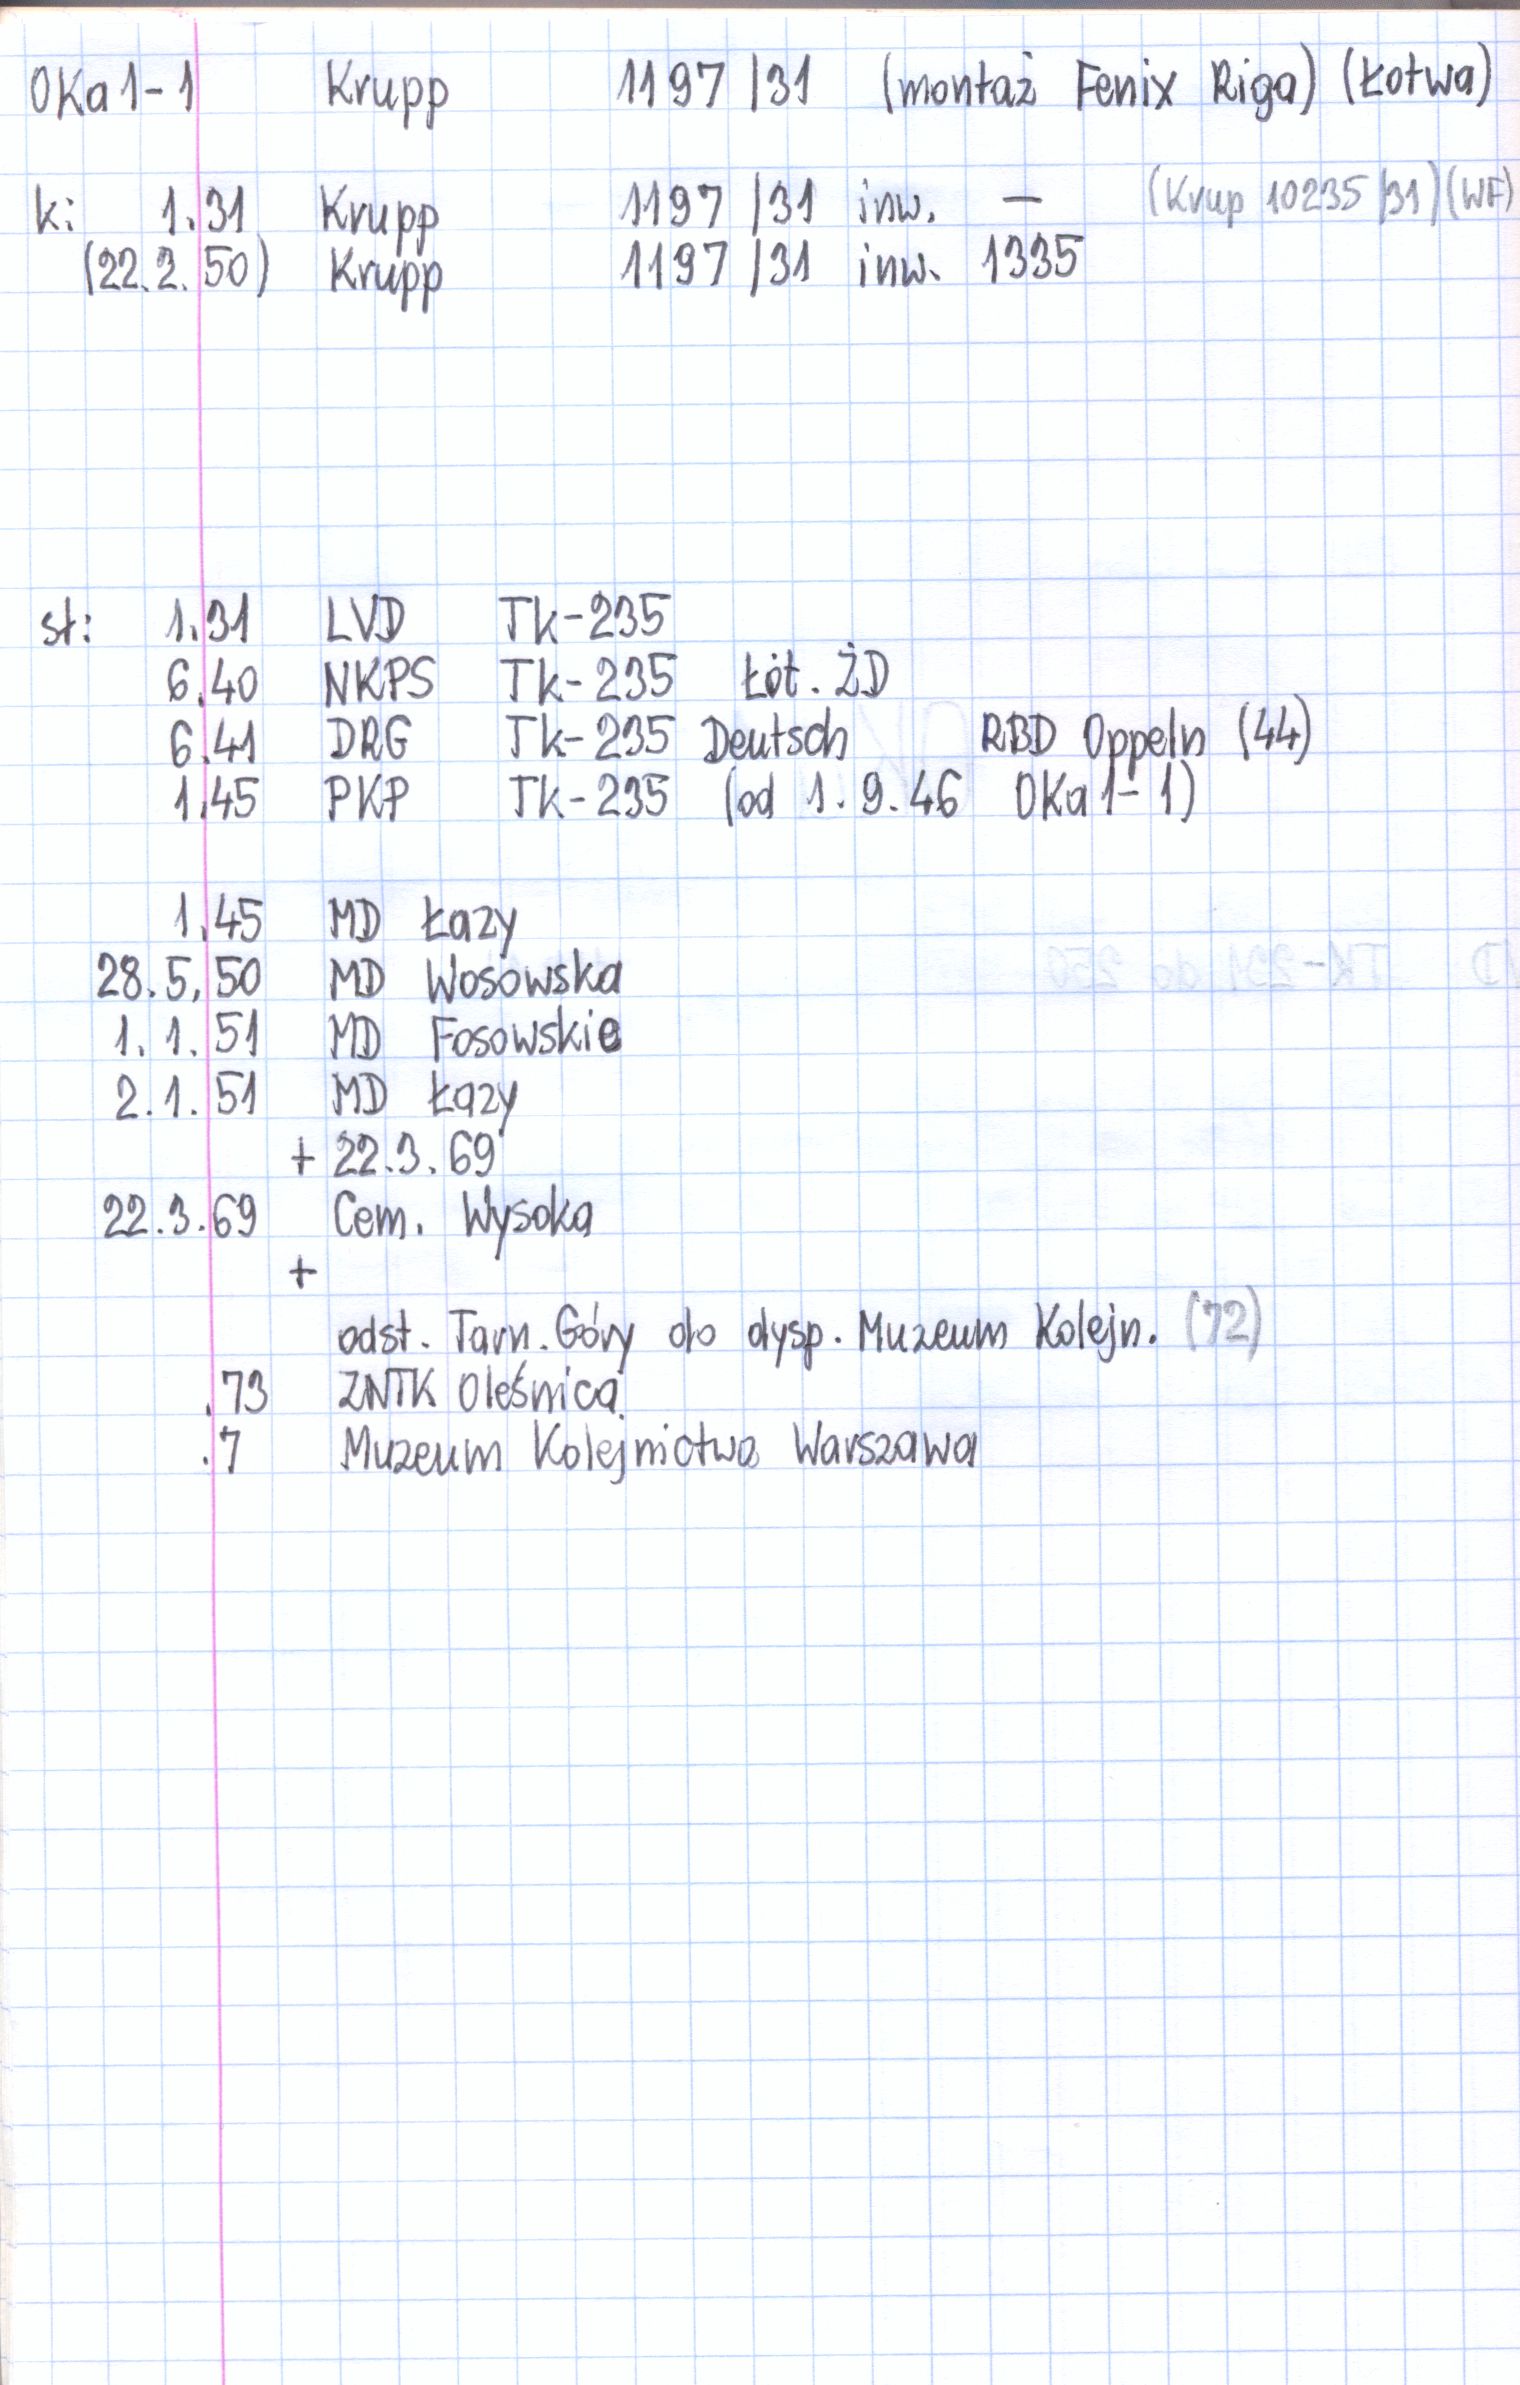 OKa1-1 Krupp 1197/31 (montaż Fenix Riga) (Łotwa)
k: 1.31 Krupp 1197/31 inw. — (Krup 10235/31) (WF)
(22.2.50) Krupp 1197/31 inw. 1335
st: 1.31 LVD Tk-235
6.40 NKPS Tk-235 Łot. ŻD
6.41 DRG Tk-235 Deutsch RBD Oppeln (44)
1.45 PKP Tk-235 (od 1.9.46 OKa1-1)
1.45 MD Łazy
28.5.50 MD Wosowska
1.1.51 MD Fosowskie
2.1.51 MD Łazy
+ 22.3.69
22.3.69 Cem. Wysoka
+
odst. Tarn. Góry do dysp. Muzeum Kolejn. (72)
.73 ZNTK Oleśnica
.7 Muzeum Kolejnictwa Warszawa